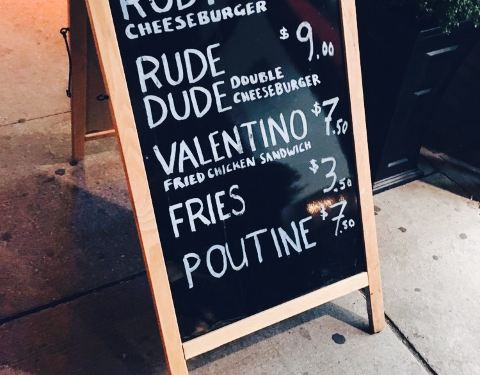 CHEESEBURGER
RUDE $9.00
DUDE DOUBLE CHEESEBURGER
VALENTINO $7.50
FRIED CHICKEN SANDWICH
FRIES $3.50
POUTINE $7.50